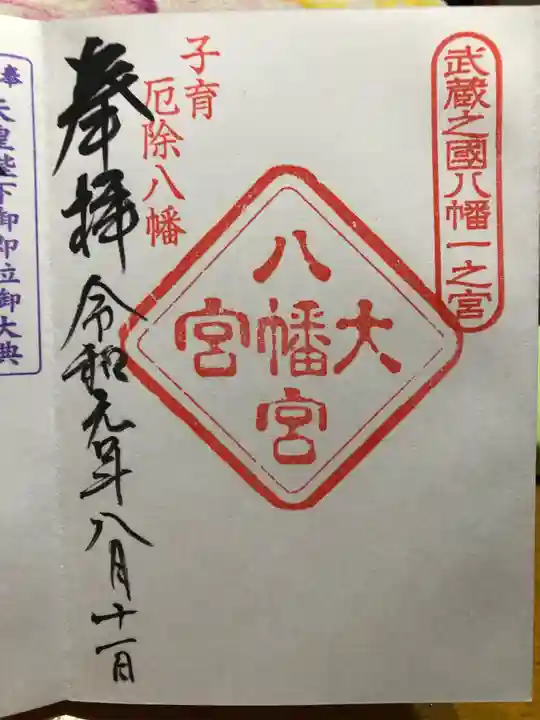 武蔵之國八幡一之宮
大宮八幡宮
子育
厄除八幡
奉拝
令和元年八月十一日
奉
天皇陛下御即位御大典